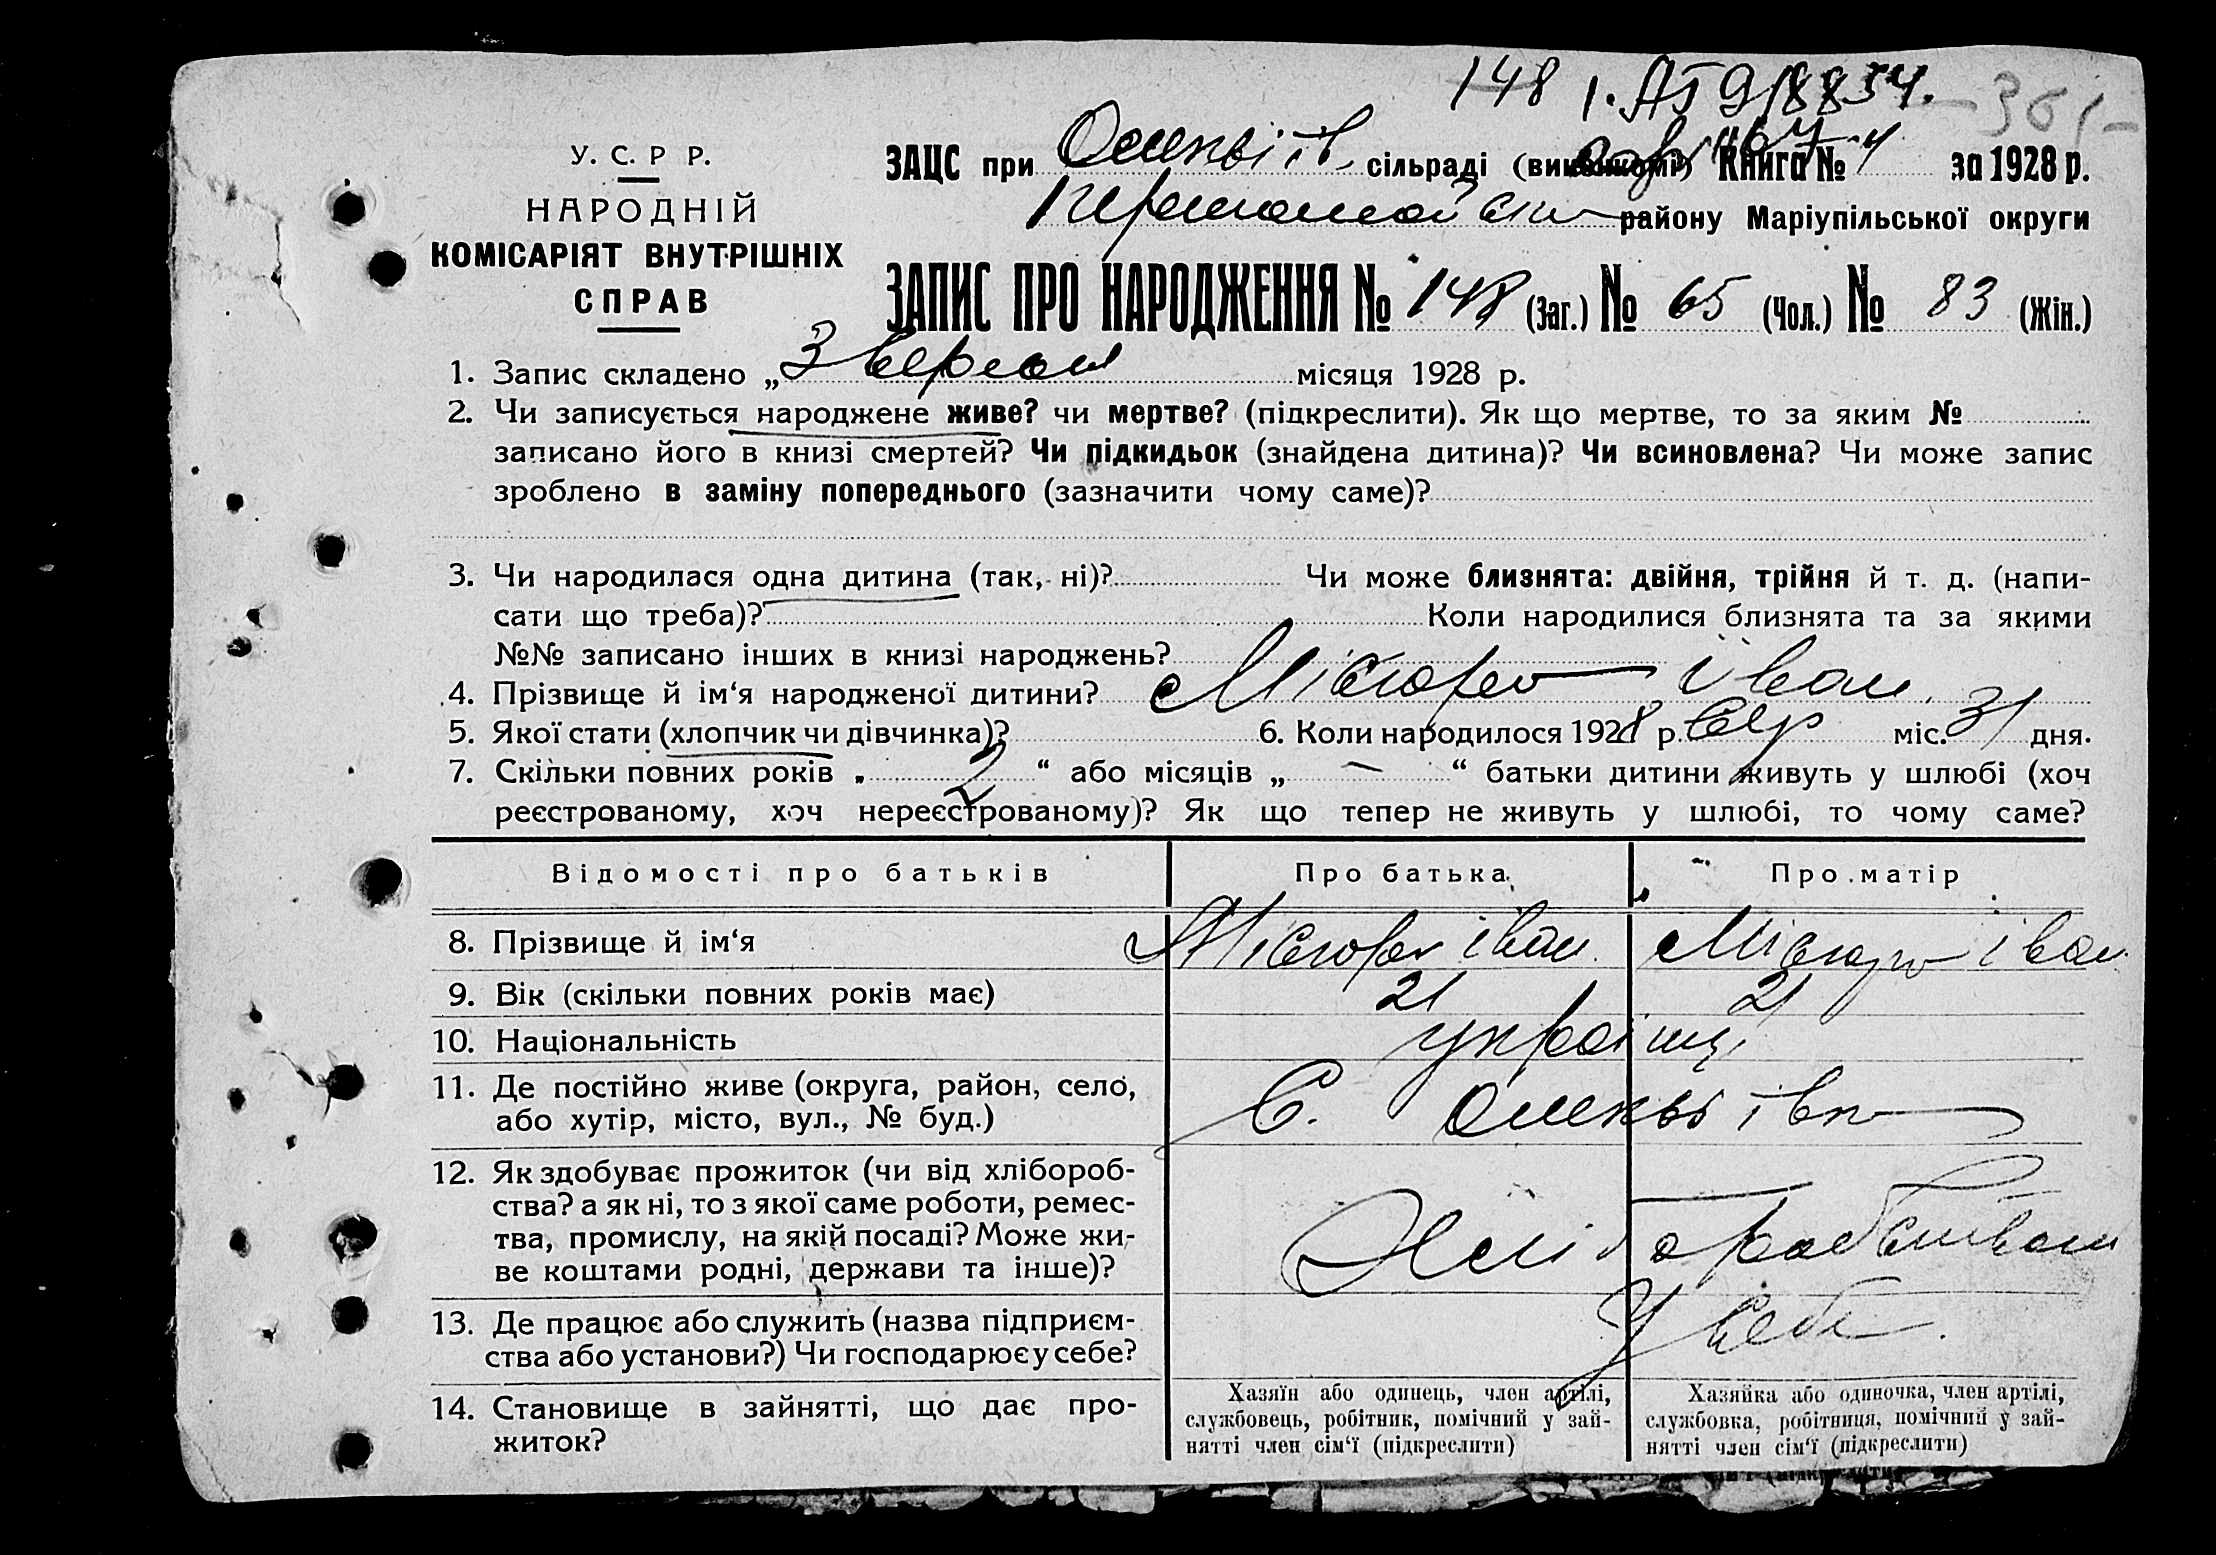 148 1. АЗ 918834. -361-
У. С. Р Р.
НАРОДНІЙ
КОМІСАРІЯТ ВНУТРІШНІХ
СПРАВ
ЗАЦС при сільраді (виконкомі) Книга № за 1928 р.
району Маріупільської округи
ЗАПИС ПРО НАРОДЖЕННЯ № 148 (Заг.) № 65 (Чол.) № 83 (Жін.)
1. Запис складено „ 3 Вересня місяця 1928 р.
2. Чи записується народжене живе? чи мертве? (підкреслити). Як що мертве, то за яким №
записано його в книзі смертей? Чи підкидьок (знайдена дитина)? Чи всиновлена? Чи може запис
зроблено в заміну попереднього (зазначити чому саме)?
3. Чи народилася одна дитина (так, ні)? Чи може близнята: двійня, трійня й т. д. (напи-
сати що треба)? Коли народилися близнята та за якими
№№ записано інших в книзі народжень?
4. Прізвище й ім‘я народженої дитини? Іван
5. Якої стати (хлопчик чи дівчинка)? 6. Коли народилося 1928 р. Сер міс. 31 дня.
7. Скільки повних років „ 2 “ або місяців „ — “ батьки дитини живуть у шлюбі (хоч
реєстрованому, хоч нереєстрованому)? Як що тепер не живуть у шлюбі, то чому саме?
Відомості про батьків Про батька Про матір
8. Прізвище й ім‘я Іван Іван
9. Вік (скільки повних років має) 21 21
10. Національність українці
11. Де постійно живе (округа, район, село, С.
або хутір, місто, вул., № буд.)
12. Як здобуває прожиток (чи від хлібороб-
ства? а як ні, то з якої саме роботи, ремес-
тва, промислу, на якій посаді? Може жи- Хліборобством
ве коштами родні, держави та інше)?
13. Де працює або служить (назва підприєм- У себе.
ства або установи?) Чи господарює у себе?
14. Становище в зайнятті, що дає про-
житок?
Хазяїн або одинець, член артілі,
службовець, робітник, помічний у зай-
нятті член сім‘ї (підкреслити)
Хазяйка або одиночка, член артілі,
службовка, робітниця, помічний у зай-
нятті член сім‘ї (підкреслити)